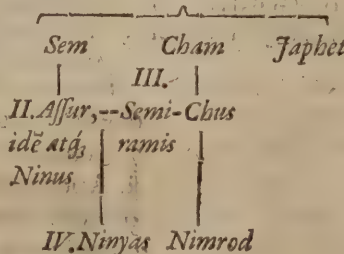 Sem Cham Japhet
III.
II. Aſſur, -- Semi- Chus
idē atq́₃ ramis
Ninus
IV. Ninyas Nimrod